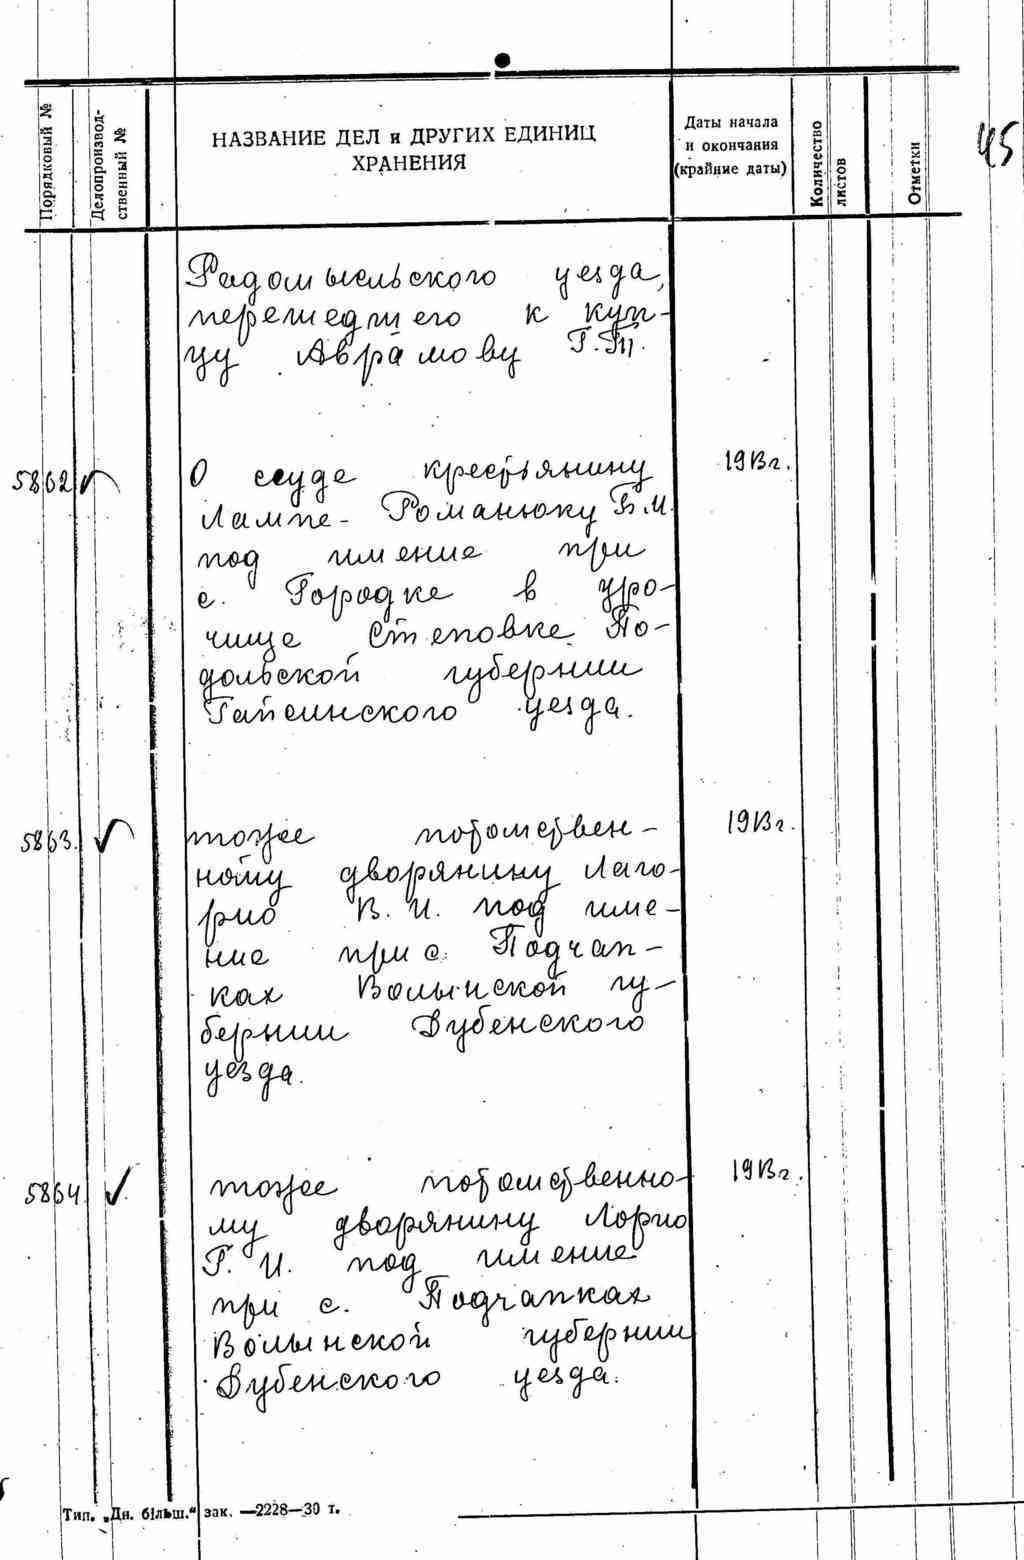 45
Порядковый №
Делопроизвод-
ственный №
НАЗВАНИЕ ДЕЛ и ДРУГИХ ЕДИНИЦ
ХРАНЕНИЯ
Даты начала
и окончания
(крайние даты)
Количество
листов
Отметки
Радомысльского уезда,
перешедшего к куп-
цу Аврамову Г.П.
5862 О ссуде крестьянину 1913г.
Лампе-Романюку Б.И.
под имение при
с. Городке в уро-
чище Степовке По-
дольской губернии
Гайсинского уезда.
5863. тоже потомствен- 1913г.
ному дворянину Лаго-
рио В.И. под име-
ние при с. Подчап-
ках Волынской гу-
бернии Дубенского
уезда.
5864 тоже потомственно- 1913г.
му дворянину Лорио
Г.И. под имение
при с. Подчапках
Волынской губернии
Дубенского уезда.
Тип. „Дн. більш.“ зак. —2228—30 т.